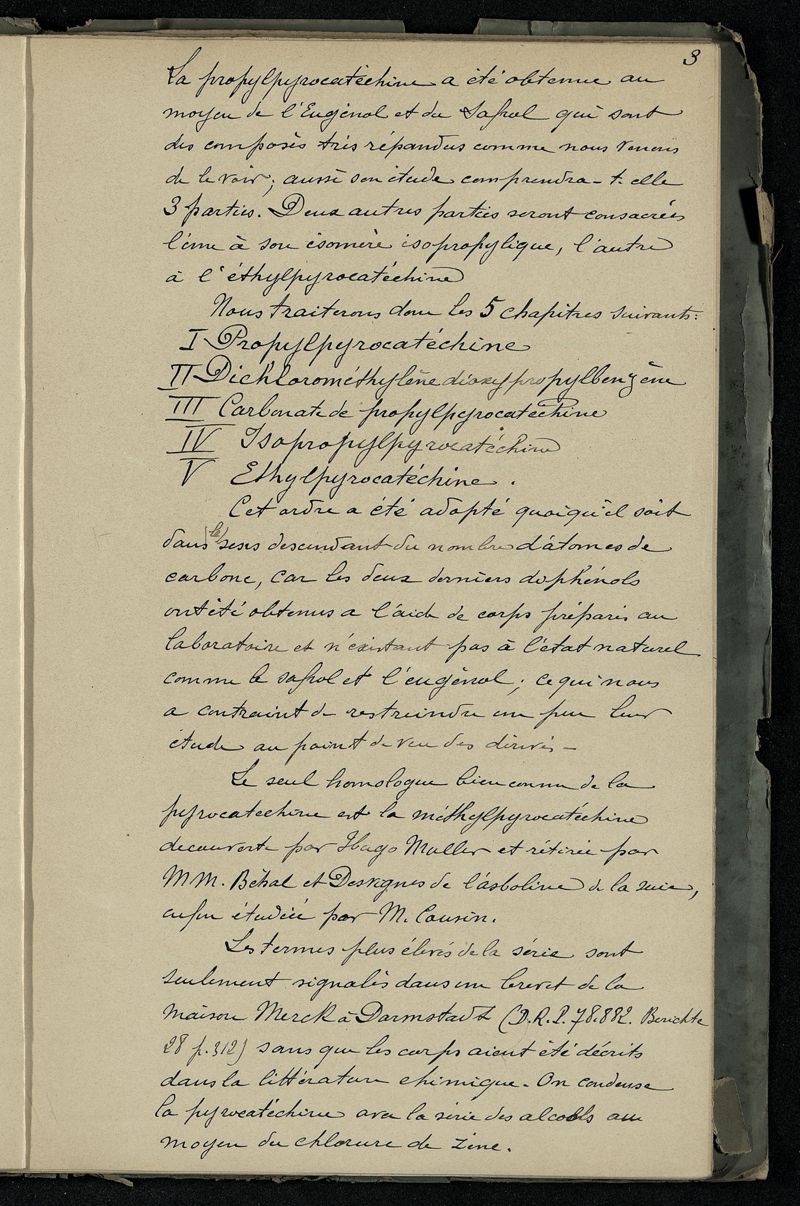 3
La propylpyrocatéchine a été obtenue au
moyen de l'Eugénol et du Safrol qui sont
des composés très répandus comme nous venons
de le voir; aussi son étude comprendra-t-elle
3 parties. Deux autres parties seront consacrées
l'une à son isomère isopropylique, l'autre
à l'éthylpyrocatéchine
Nous traiterons donc les 5 chapitres suivants:
I Propylpyrocatéchine
II Dichlorométhylène dioxypropylbenzène
III Carbonate de propylpyrocatéchine
IV Isopropylpyrocatéchine
V Ethylpyrocatéchine.
Cet ordre a été adopté quoiqu'il soit
dans le sens descendant du nombre d'atomes de
carbone, car les deux derniers diphénols
ont été obtenus a l'aide de corps préparés au
laboratoire et n'existant pas à l'état naturel
comme le safrol et l'eugénol; ce qui nous
a contraint de restreindre un peu leur
étude au point de vue des dérivés -
Le seul homologue bien connu de la
pyrocatechine est la méthylpyrocatéchine
decouverte par Hugo Muller et retirée par
MM. Béhal et Desvignes de l'asboline de la suie,
enfin étudiée par M. Cousin.
Les termes plus élevés de la série sont
seulement signalés dans un brevet de la
maison Merck à Darmstadt (D.R.P. 78.882. Berichte
28 p. 312) sans que les corps aient été décrits
dans la littérature chimique. On condense
la pyrocatéchine avec la série des alcools au
moyen du chlorure de zinc.